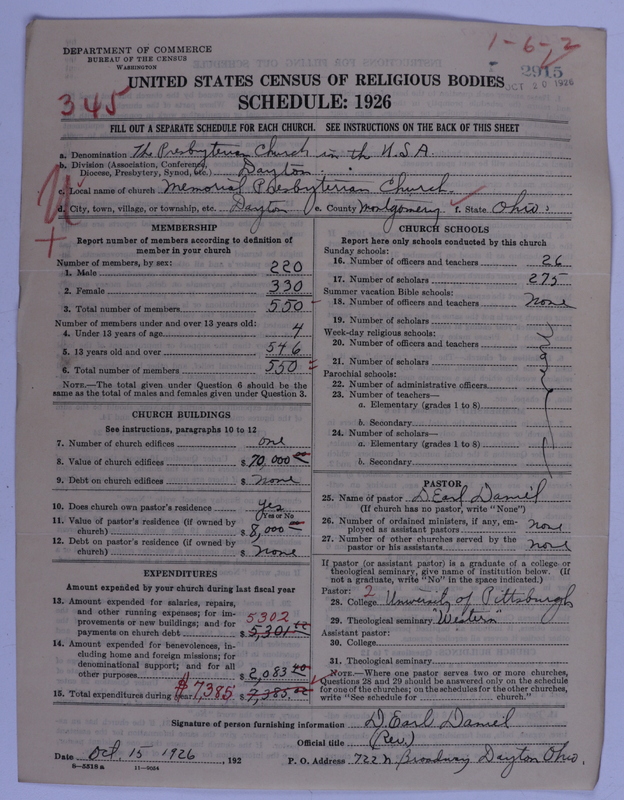 DEPARTMENT OF COMMERCE
BUREAU OF THE CENSUS
WASHINGTON
1-6-2
2915
OCT 20 1926
345
UNITED STATES CENSUS OF RELIGIOUS BODIES
SCHEDULE: 1926
FILL OUT A SEPARATE SCHEDULE FOR EACH CHURCH. SEE INSTRUCTIONS ON THE BACK OF THIS SHEET
a. Denomination The Presbyterian Church in the U.S.A.
b. Division (Association, Conference, Diocese, Presbytery, Synod, etc.) Dayton
c. Local name of church Memorial Presbyterian Church.
d. City, town, village, or township, etc. Dayton e. County Montgomery f. State Ohio
MEMBERSHIP
Report number of members according to definition of
member in your church
Number of members, by sex:
1. Male 220
2. Female 330
3. Total number of members 550
Number of members under and over 13 years old:
4. Under 13 years of age 4
5. 13 years old and over 546
6. Total number of members 550
NOTE.—The total given under Question 6 should be
same as the total of males and females given under Question 3.
CHURCH BUILDINGS
See instructions, paragraphs 10 to 12
7. Number of church edifices one
8. Value of church edifices $ 70,000 00
9. Debt on church edifices $ None
10. Does church own pastor's residence yes
(Yes or No)
11. Value of pastor's residence (if owned by
church) $ 8,000
12. Debt on pastor's residence (if owned by
church) $ None
EXPENDITURES
Amount expended by your church during last fiscal year
13. Amount expended for salaries, repairs,
and other running expenses; for im-
provements or new buildings; and for 5302
payments on church debt $ 5,301
14. Amount expended for benevolences, in-
cluding home and foreign missions; for
denominational support; and for all
other purposes $ 2,083 40
15. Total expenditures during year $7,385 $ 7,385
CHURCH SCHOOLS
Report here only schools conducted by this church
Sunday schools:
16. Number of officers and teachers 26
17. Number of scholars 275
Summer vacation Bible schools:
18. Number of officers and teachers None
19. Number of scholars
Week-day religious schools:
20. Number of officers and teachers
21. Number of scholars
Parochial schools:
22. Number of administrative officers
23. Number of teachers—
a. Elementary (grades 1 to 8)
b. Secondary
24. Number of scholars—
a. Elementary (grades 1 to 8)
b. Secondary
PASTOR
25. Name of pastor D Earl Daniel
(If church has no pastor, write "None")
26. Number of ordained ministers, if any, em-
ployed as assistant pastors None
27. Number of other churches served by the
pastor or his assistants None
If pastor (or assistant pastor) is a graduate of a college or
theological seminary, give name of institution below. (If
not a graduate, write "No" in the space indicated.)
Pastor: 2
28. College University of Pittsburgh
29. Theological seminary "Western"
Assistant pastor:
30. College
31. Theological seminary
NOTE.—Where one pastor serves two or more churches,
Questions 28 and 29 should be answered only on the schedule
for one of the churches; on the schedules for the other churches,
write "See schedule for church."
Signature of person furnishing information D. Earl Daniel
Official title (Rev.)
Date Oct. 15 1926, 192 P. O. Address 722 N. Broadway Dayton Ohio.
8-5318 a 11-9054